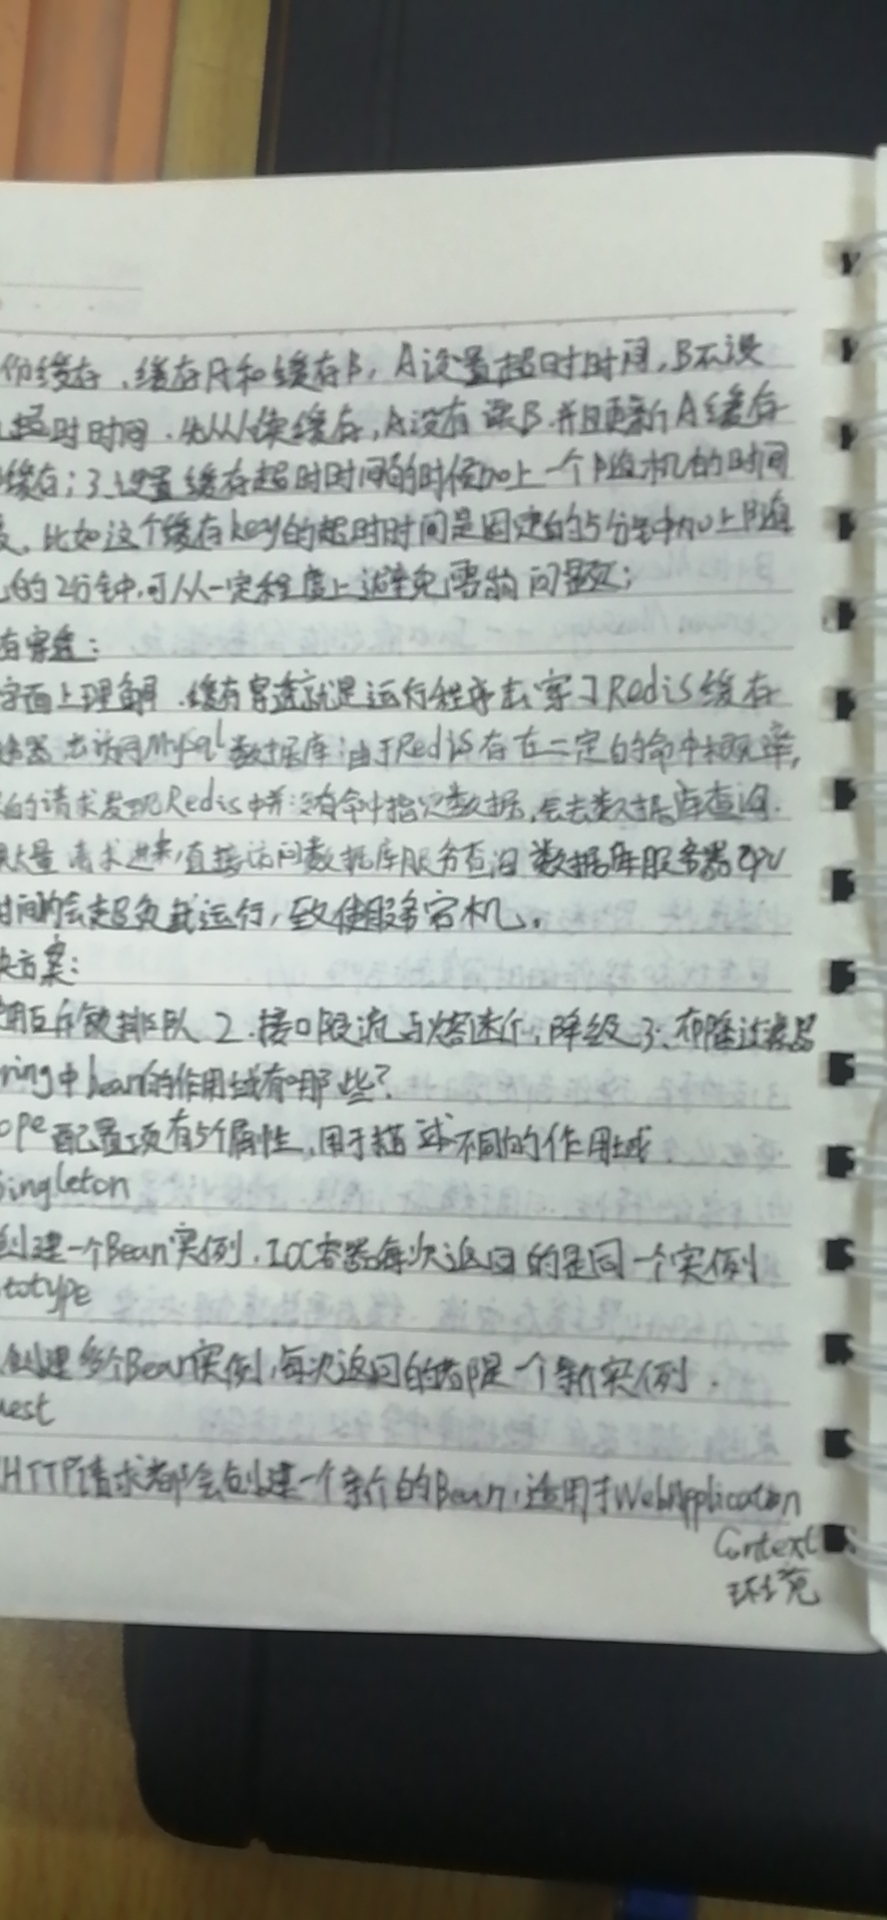 份缓存，缓存A和缓存B，A设置超时时间，B不设
超时时间．先从A读缓存，A没有读B．并且更新A缓存
缓存；3．设置缓存超时时间的时候加上一个随机的时间
比如这个缓存key的超时时间是固定的5分钟加上随
的2分钟，可从一定程度上避免雪崩问题；
存穿透：
字面上理解．缓存穿透就是运行程序去穿了Redis缓存
去访问Mysql数据库；由于Redis存在一定的命中概率，
的请求发现Redis中并没有命中指定数据，会去数据库查询．
大量请求进来，直接访问数据库服务查询 数据库服务器CPU
时间内会超负载运行，致使服务宕机。
决方案：
用互斥锁排队 2．接口限流与熔断、降级 3．布隆过滤器
ring中bean的作用域有哪些？
ope配置项有5个属性，用于描述不同的作用域
Singleton
创建一个Bean实例．IOC容器每次返回的是同一个实例
totype
创建多个Bean实例，每次返回的都是一个新实例．
uest
HTTP请求都会创建一个新的Bean，适用于WebApplication
Context
环境